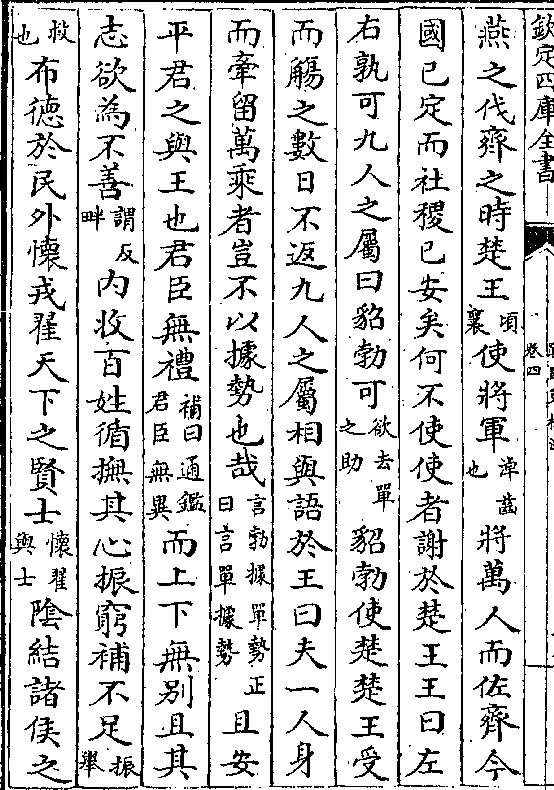 欽定四庫全書
卷四
燕之伐齊之時楚王頃襄使將軍淖齒也將萬人而佐齊今
國已定而社稷已安矣何不使使者謝於楚王王曰左
右孰可九人之屬曰貂勃可欲去單之助貂勃使楚楚王受
而觴之數日不返九人之屬相與語於王曰夫一人身
而牽留萬乘者豈不以據勢也哉言勃據單勢正曰言單據勢且安
平君之與王也君臣無禮補曰通鑑君臣無異而上下無別且其
志欲為不善謂反畔內收百姓循撫其心振窮補不足振舉
救也布德於民外懷戎翟天下之賢士懷翟與士陰結諸侯之